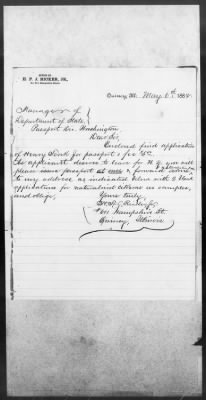 OFFICE OF
H. P. J. RICKER, JR.,
Quincy, Ill. May 6th 1884.
Manager of
Department of State,
Passport Div. Washington
Dear Sir,
Enclosed find application
of Henry for passport & fee $5.
The applicant desires to leave for N. Y. you will
please issue passport & forward
to my address as indicated Also with 3 blank
applications for naturalized citizens as samples,
and oblige,
Yours truly,
Hampshire St.
Quincy, Illinois